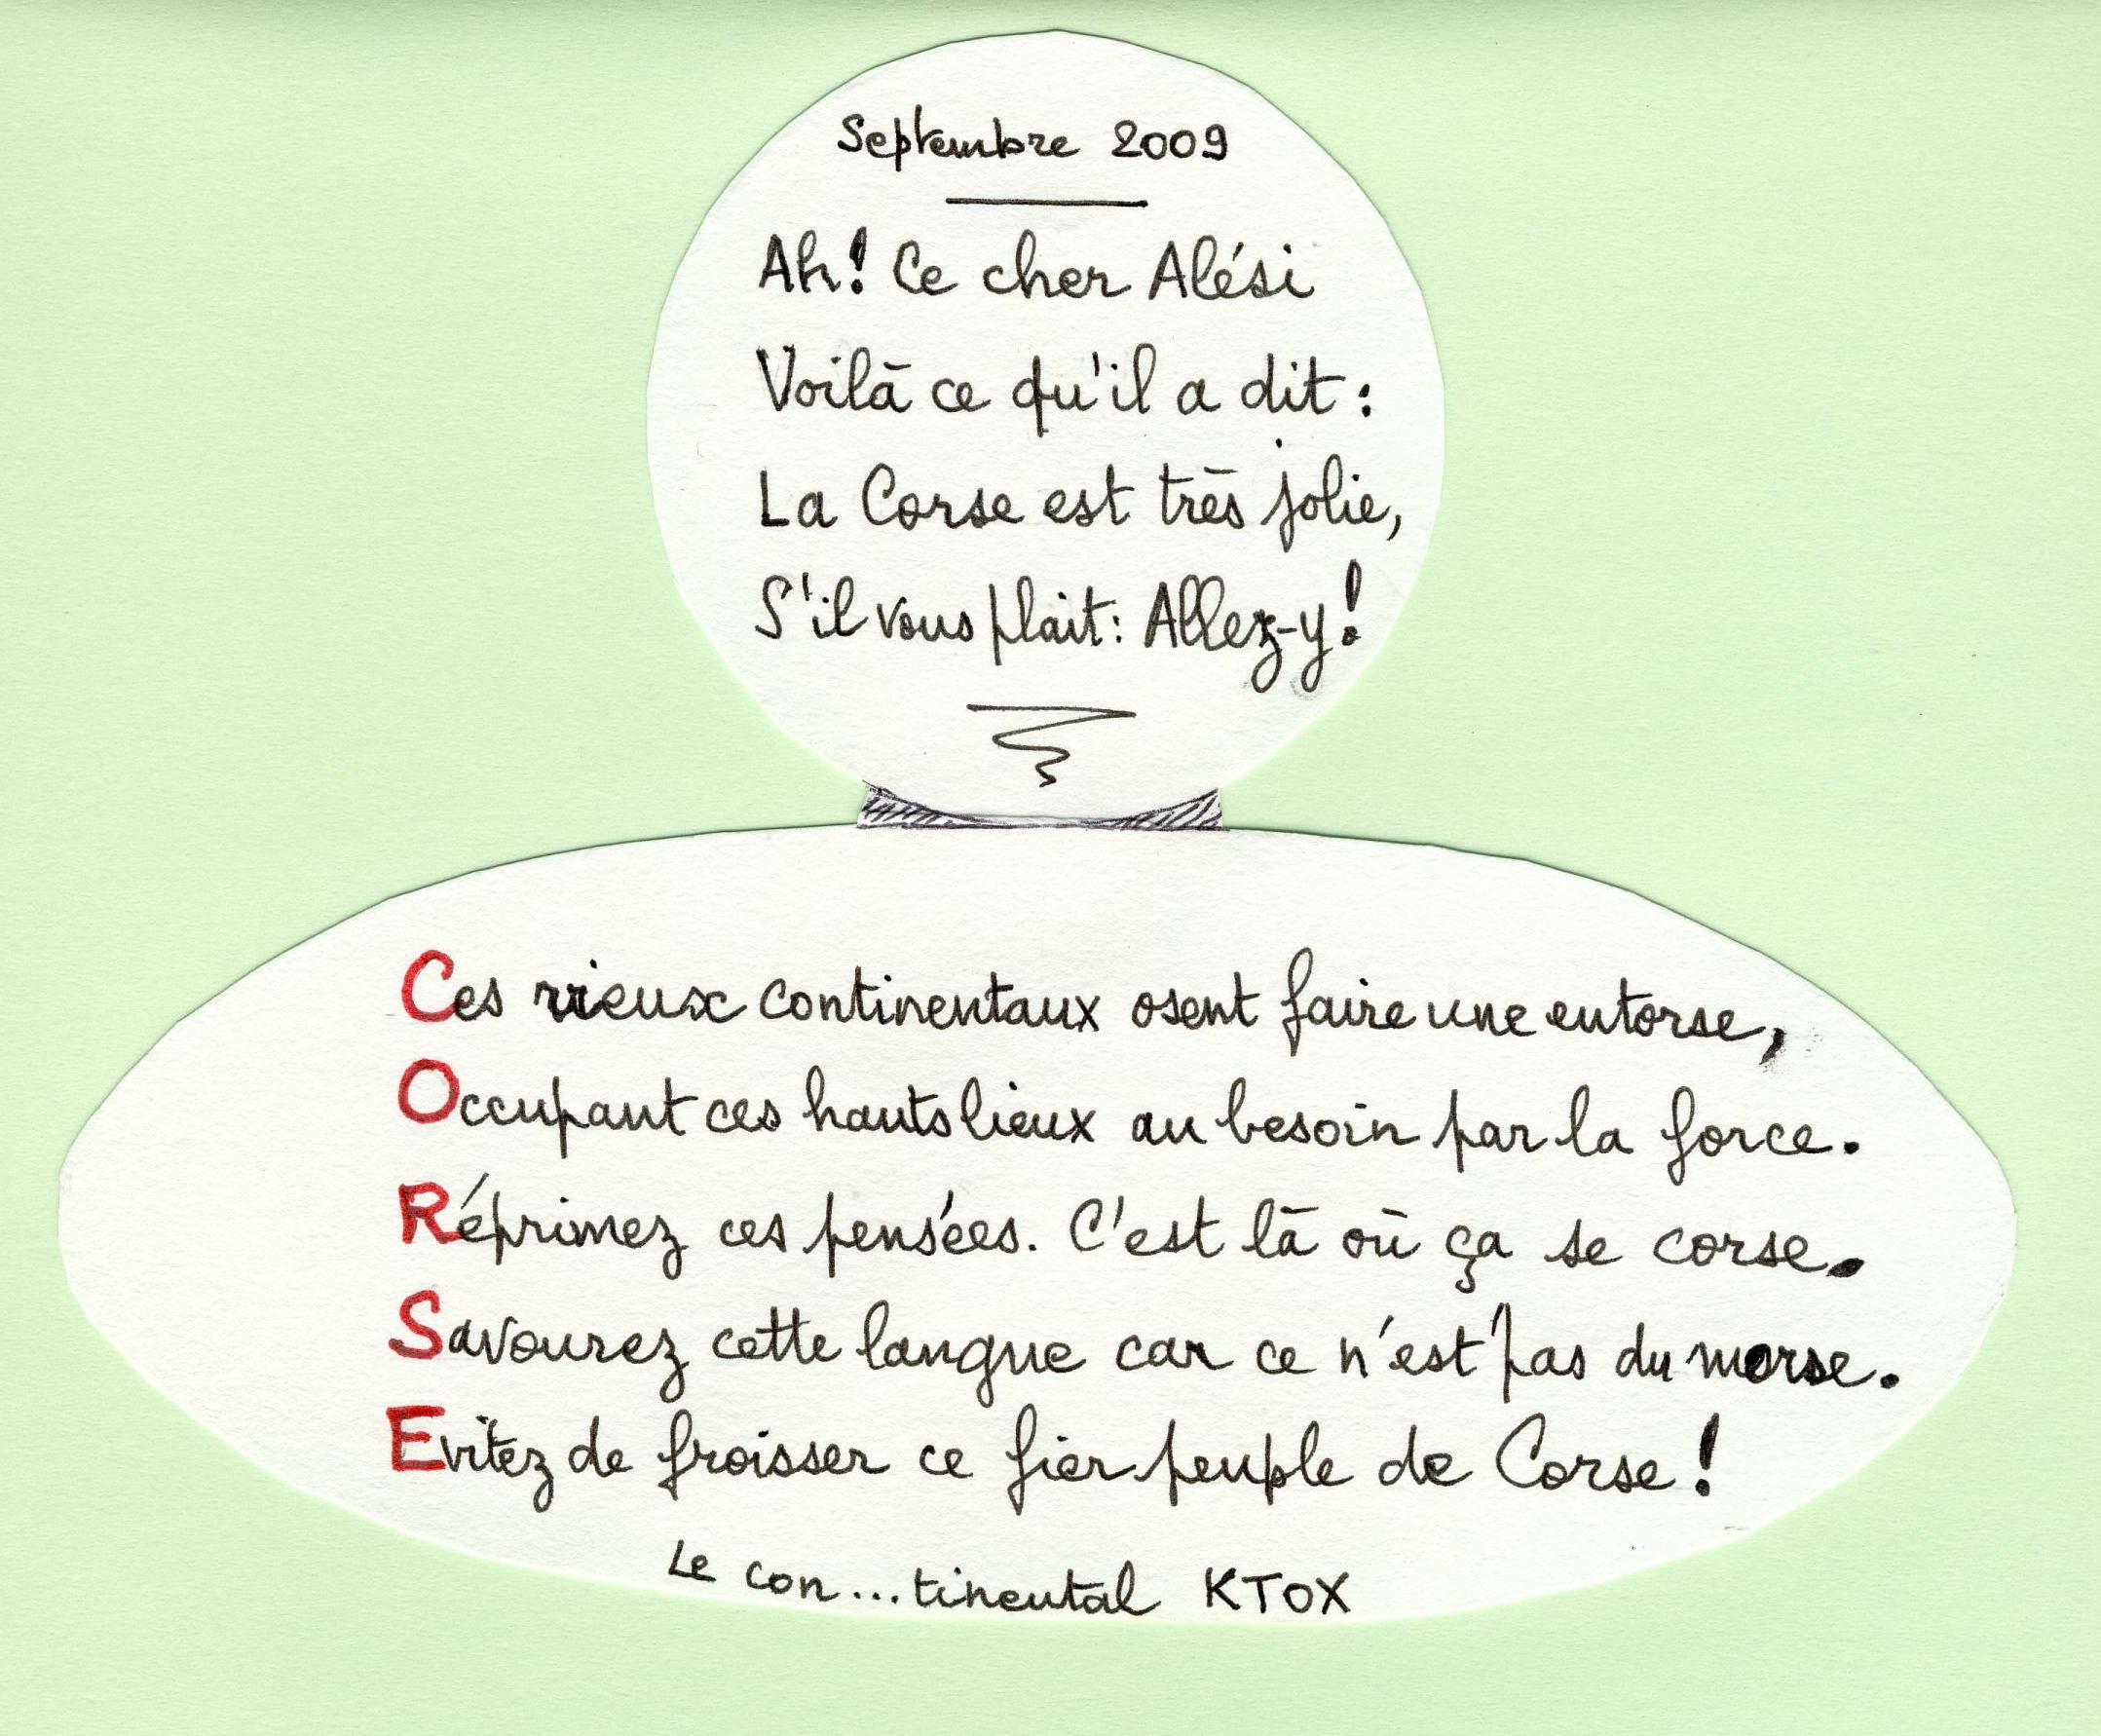 Septembre 2009
Ah! Ce cher Alési
Voilà ce qu'il a dit :
La Corse est très jolie,
S'il vous plait : Allez-y !
Ces vieux continentaux osent faire une entorse,
Occupant ces hauts lieux au besoin par la force.
Réprimez ces pensées. C'est là où ça se corse.
Savourez cette langue car ce n'est pas du morse.
Evitez de froisser ce fier peuple de Corse !
Le con...tinental KTOX